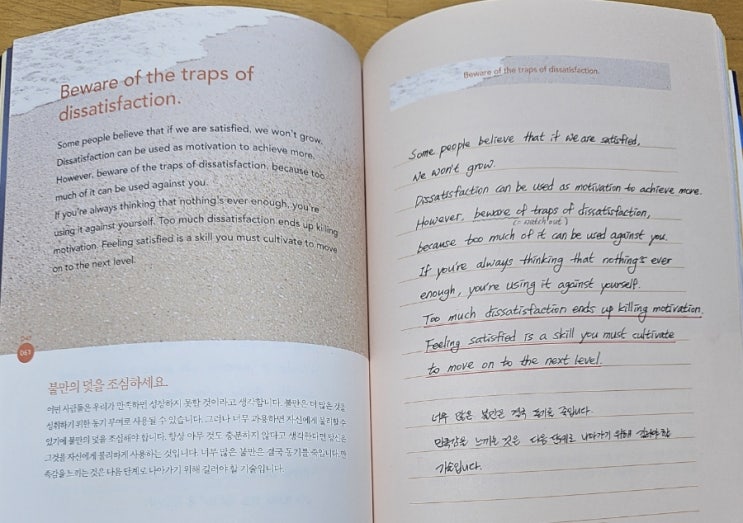 Beware of the traps of
dissatisfaction.
Some people believe that if we are satisfied, we won't grow.
Dissatisfaction can be used as motivation to achieve more.
However, beware of the traps of dissatisfaction, because too
much of it can be used against you.
If you're always thinking that nothing's ever enough, you're
using it against yourself. Too much dissatisfaction ends up killing
motivation. Feeling satisfied is a skill you must cultivate to move
on to the next level.
061
불만의 덫을 조심하세요.
어떤 사람들은 우리가 만족하면 성장하지 못할 것이라고 생각합니다. 불만은 더 많은 것을
성취하기 위한 동기 부여로 사용될 수 있습니다. 그러나 너무 과용하면 자신에게 불리할 수
있기에 불만의 덫을 조심해야 합니다. 항상 아무 것도 충분하지 않다고 생각한다면 당신은
그것을 자신에게 불리하게 사용하는 것입니다. 너무 많은 불만은 결국 동기를 죽입니다. 만
족감을 느끼는 것은 다음 단계로 나아가기 위해 길러야 할 기술입니다.
Beware of the traps of dissatisfaction.
Some people believe that if we are satisfied,
we won't grow.
Dissatisfaction can be used as motivation to achieve more.
However, beware of traps of dissatisfaction,
(= watch out)
because too much of it can be used against you.
If you're always thinking that nothing's ever
enough, you're using it against yourself.
Too much dissatisfaction ends up killing motivation.
Feeling satisfied is a skill you must cultivate
to move on to the next level.
너무 많은 불만은 결국 동기를 죽입니다.
만족감을 느끼는 것은 다음 단계로 나아가기 위해 길러야 할
기술입니다.